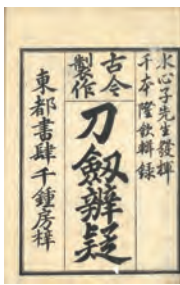 水心子先生發揮
千本隆欽輯録
古今
製作
刀劔辨疑
東都書肆千鍾房梓